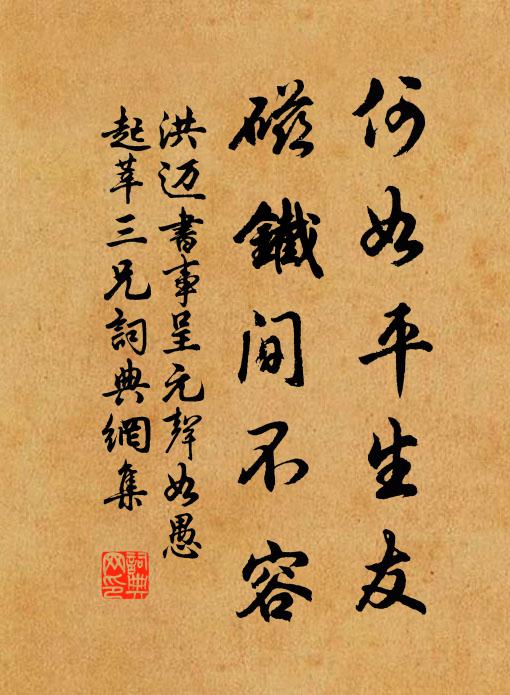 何如平生友
磁鐵間不容
洪迈書事呈元聲如愚
起莘三兄詞典網集
詞典网印